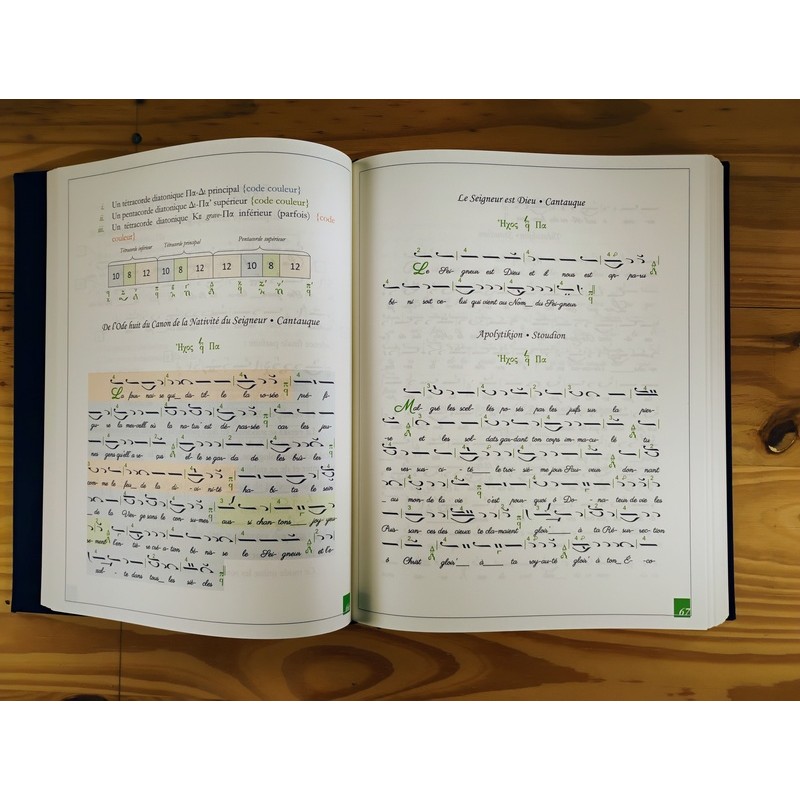 i. Un tétracorde diatonique Πα-Δι principal {code couleur}
ii. Un pentacorde diatonique Δι-Πα' supérieur {code couleur}
iii. Un tétracorde diatonique Κε grave-Πα inférieur (parfois) {code
couleur}
Tétracorde inférieur Tétracorde principal Pentacorde supérieur
10 8 12 10 8 12 12 10 8 12
De l'Ode huit du Canon de la Nativité du Seigneur • Cantauque
Ἦχος Πα
La four- nai- se qui_ da- til- le la ro-sée pré- fi-
gu- re la mer-veill' où la na-tur' est dé- pas-sée car les jeu-
nes gens qu'ell' a re- el- le se gar- da de les brû- ler
com- me le feu_ de la di- vi- ni-té ha- bi- ta le sein
de la Vier-ge sans le con- su-mer aus- si chan-tons___ joy-
bé- nis- se le Sei- gneur et l'e-
xal- te dans tous_ les siè- cles
Le Seigneur est Dieu • Cantauque
Ἦχος Πα
Le Sei- gneur est Dieu et il nous est ap- pa-ru
bé- ni soit ce- lui qui vient au Nom_ du Sei-gneur
Apolytikion • Stoudion
Ἦχος Πα
Mal- gré les scel- lés po- sés par les juifs sur la pier-
re et les sol- dats gar-dant ton corps im-ma-cu- lé tu
es res-sus-ci- té___ le troi-siè-me jour Sau- veur don- nant
au mon- de la vie c'est pour- quoi ô Do- na- teur de vie les
Puis- san- ces des cieux te cla-maient gloir'___ à ta Ré- sur- rec-tion
ô Christ gloir'_ à___ ta roy-au-té gloir' à ton_ É- co-
67